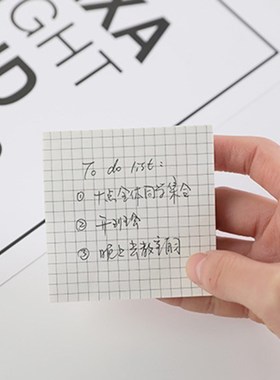 XA
GHT
To do list:
① 十点全体同学集合
② 开班会
③ 晚上去教室自习